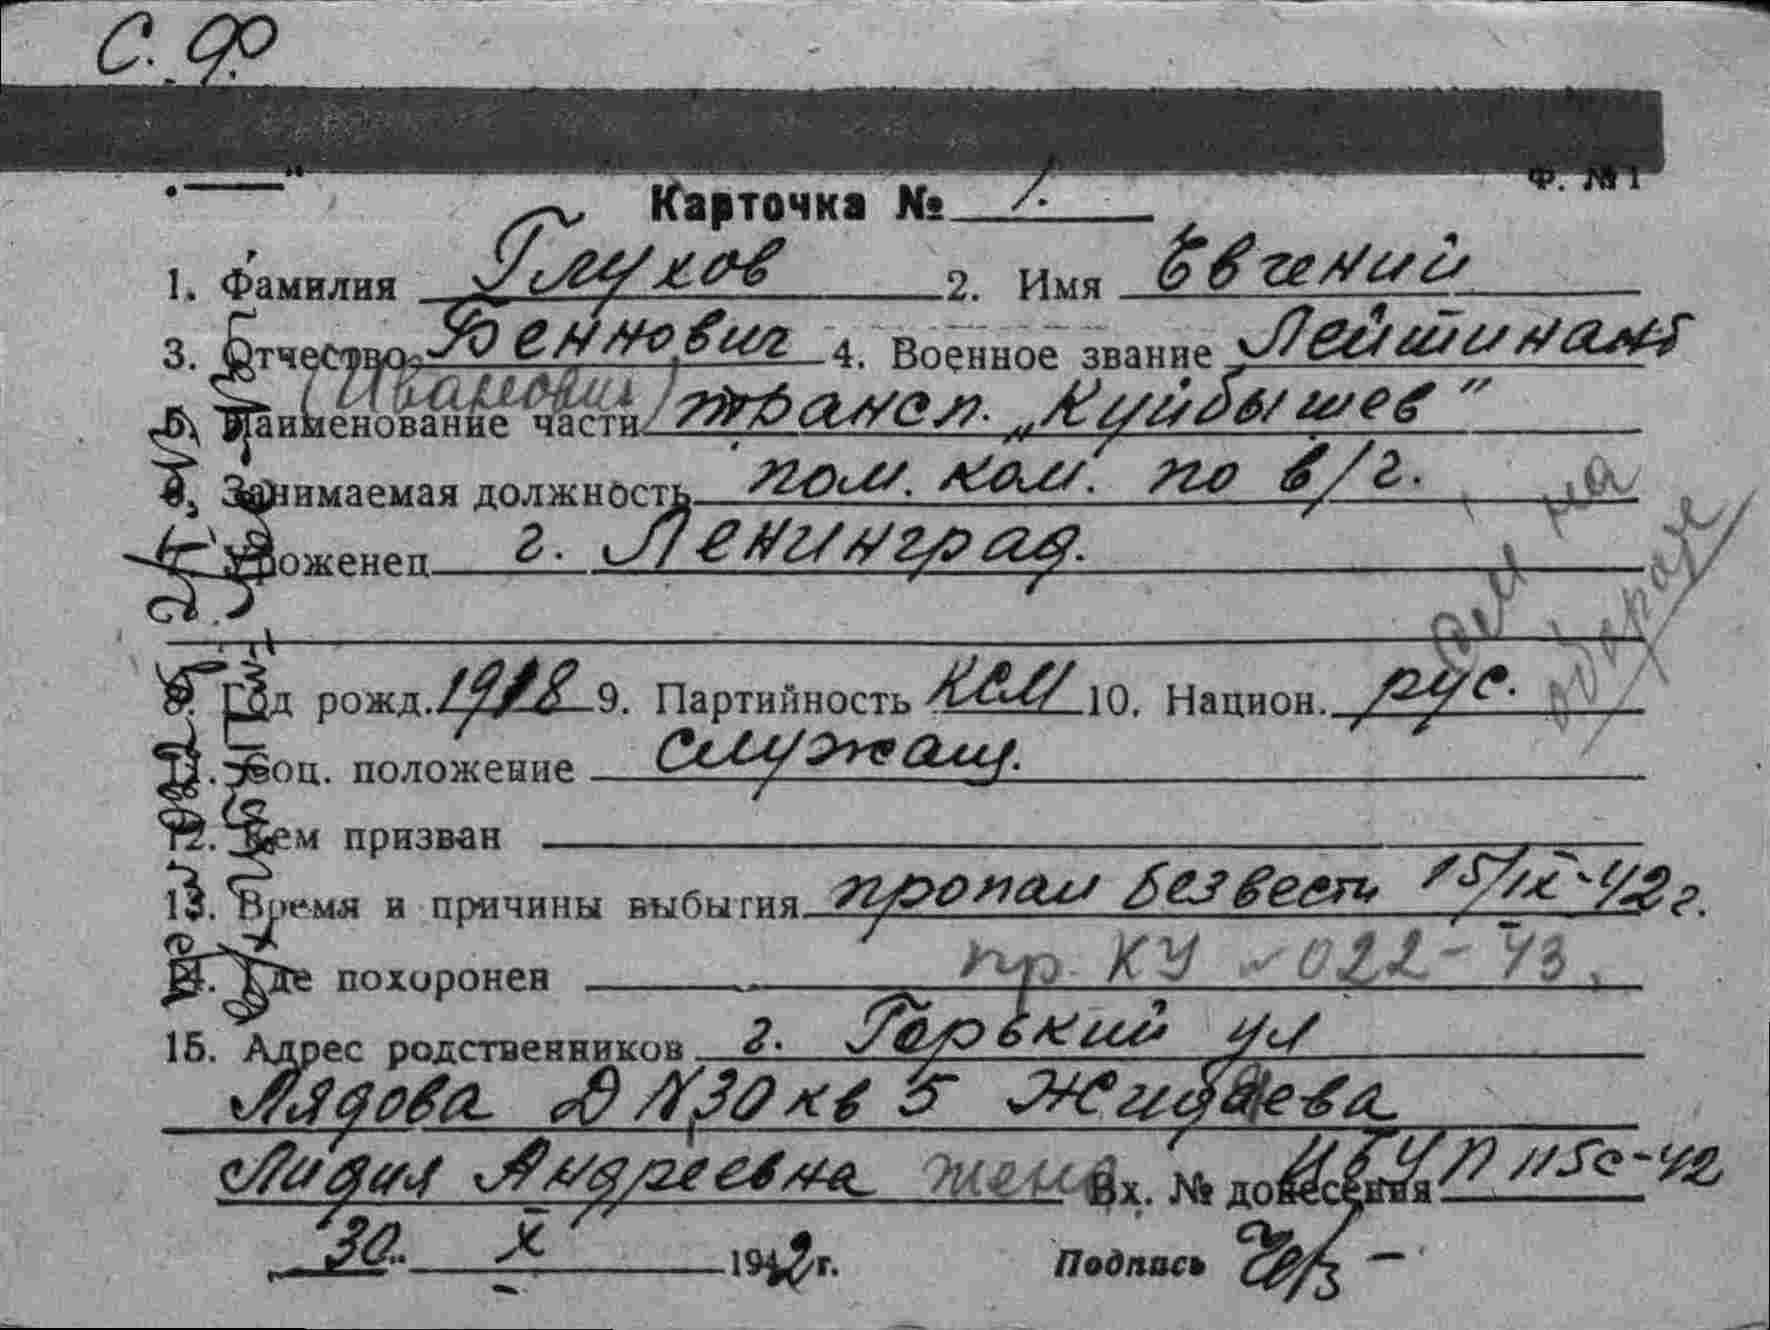 С. Ф.
Ф. № 1
Карточка № 1.
1. Фамилия Глухов 2. Имя Евгений
3. Отчество Беннович 4. Военное звание Лейтинант
(Иванович)
5. Наименование части трансп. „Куйбышев"
6. Занимаемая должность пом. ком. по в/г.
7. Уроженец г. Ленинград.
8. Год рожд. 1918 9. Партийность КСМ 10. Национ. рус.
11. Соц. положение служащ.
12. Кем призван
13. Время и причины выбытия пропал безвести 15/IX-42 г.
14. Где похоронен пр. КУ 022-43.
15. Адрес родственников г. Горький ул
Лядова Д N 30 кв 5
Лидия Андреевна жена Вх. № донесения 115с-42
30 X 1942 г. Подпись
См на
обороте